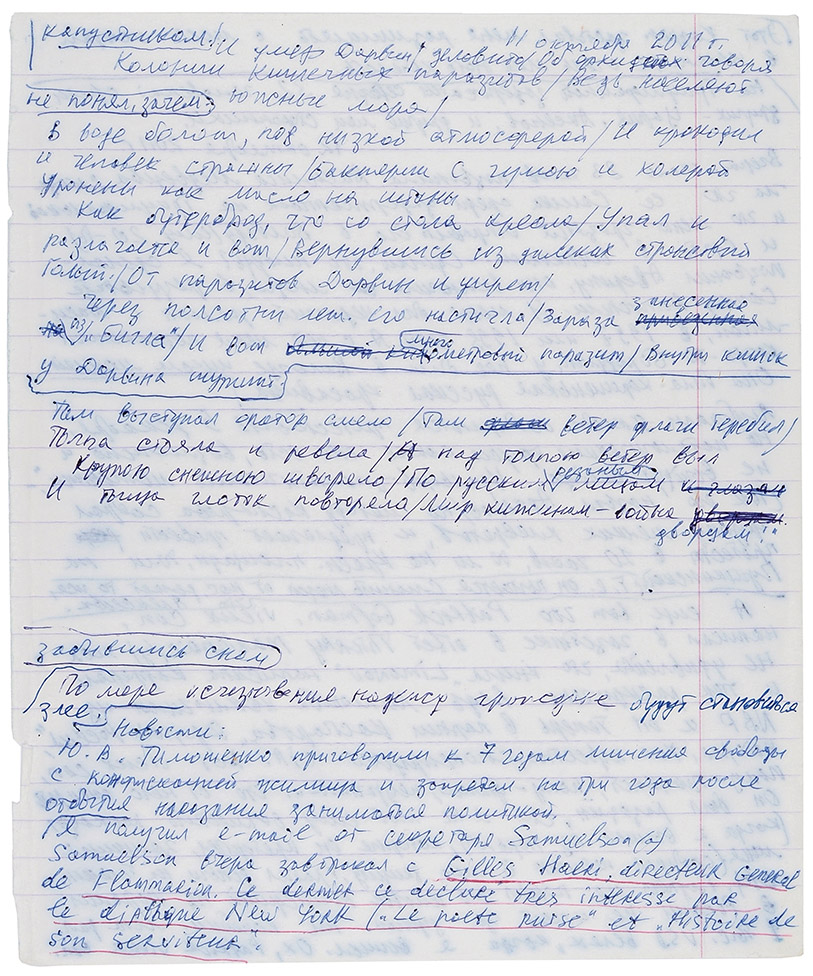 капустником! 11 октября 2011 г.
И умер Дарвин / деловито Об говоря
Колонии кишечных паразитов / Ведь населяют
не понял, зачем; южные моря /
В воде болот, под низкой атмосферой / И крокодил
и человек страшны / Бактерии С чумою и холерой
Уронены как масло на штаны
Как бутерброд, что со стола креола / Упал и
разлагается и вот / Вернувшись из далеких странствий
Голый: / От паразитов Дарвин и умрет /
Через полсотни лет его настигла / Зараза занесенная
из / "Бигля" / И вот много метровый паразит / Внутри кишок
у Дарвина
Там выступал оратор смело / Там ветер флаги теребил /
Толпа стояла и ревела / А над толпою ветер выл
Крупою снежною швыряло / По русским лицам
И толпа глоток повторяла / Мир хижинам – война
дворцам!"
забывшись сном
По море исчезновения надежд будут становиться
злее.
Новости:
Ю. В. Тимошенко приговорили к 7 годам лишения свободы
с конфискацией жилища и запретом на три года после
отбытия наказания заниматься политикой.
Я получил e-mail от секретаря Samuelson(a)
Samuelson вчера завтракал с Gilles Haeri, directeur general
de Flammarion. Ce dernier se declare très interesse par
le diptique New York ("Le poete russe" et "Histoire de
son serviteur".